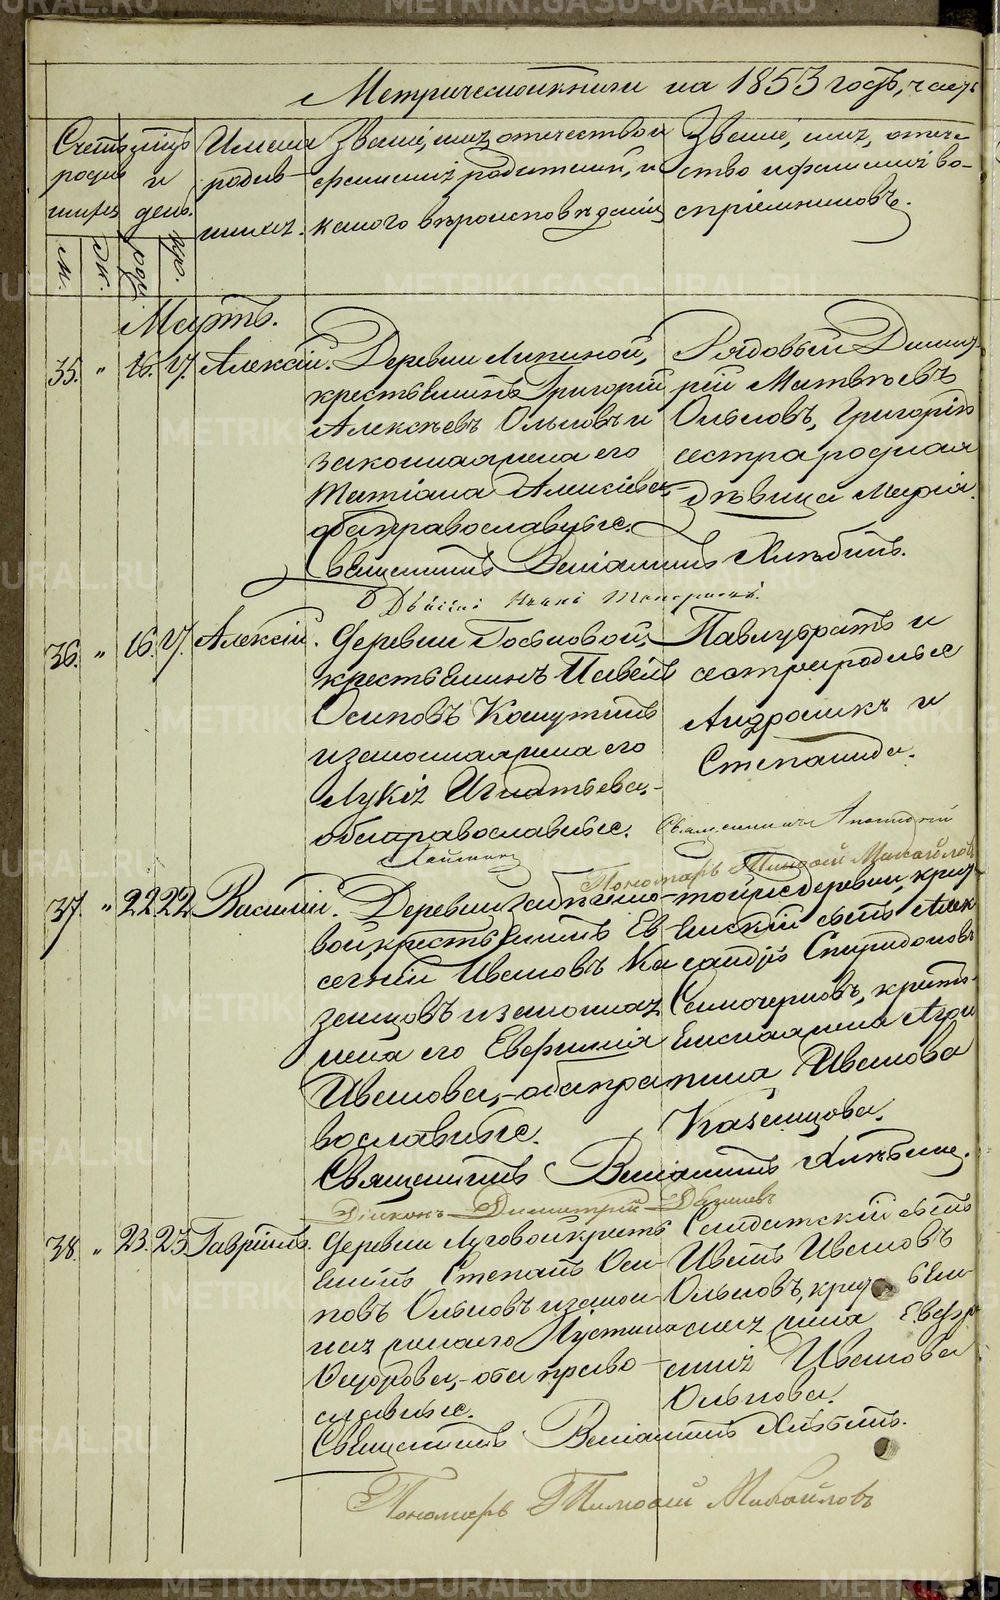 Метрической книги на 1853 годъ, часть
Счетъ родившихся
м.
ж.
Мѣсяцъ и день.
рож.
кр.
Имена родившихся.
Званіе, имя, отчество и
фамилія родителей, и
какого вѣроисповѣданія
Званіе, имя, отче-
ство и фамилія во-
спріемниковъ.
Мартъ.
35. " 16. 17. Алексій.
Деревни Липиной,
крестьянинъ Григорій
Алексѣевъ Ольковъ и
законная жена его
Татіана Алексѣева,
оба православные.
Рядовый Димит-
рій Матвѣевъ
Ольковъ, Григорія
сестра родная
дѣвица Марія.
Священникъ Веніаминъ Хлѣбинъ.
36. " 16. 17. Алексій.
Деревни Госьковой,
крестьянинъ Павелъ
Осиповъ Кошутинъ
и законная жена его
Лукія Игнатьева,-
оба православные.
Павлу братъ и
сестра родные
Андроникъ и
Степанида.
Священникъ
Пономарь Тимоѳей Михайловъ
37. " 22 22 Василій.
Деревни
вой, крестьянинъ Ев-
сегній Ивановъ Ка-
занцовъ и законная
жена его Евфимія
Иванова,-оба пра-
вославные.
той же деревни, крест-
Алек-
сандръ Спиридоновъ
Самочерновъ, крест-
жена Агри-
пина Иванова
Казанцова.
Священникъ Веніаминъ Хлѣбинъ.
Діаконъ Димитрій
38. " 23. 25 Гавріилъ.
Деревни Луговой крестъ-
янинъ Степанъ Оси-
повъ Ольковъ и закон-
ная жена его Иустина
Ѳедорова,-оба право-
славные.
Солдатскій сынъ
Иванъ Ивановъ
Ольковъ, крестьян-
ская жена Евфро-
синія Иванова
Олькова.
Священникъ Веніаминъ Хлѣбинъ.
Пономарь Тимоѳей Михайловъ
METRIKI.GASO-URAL.RU